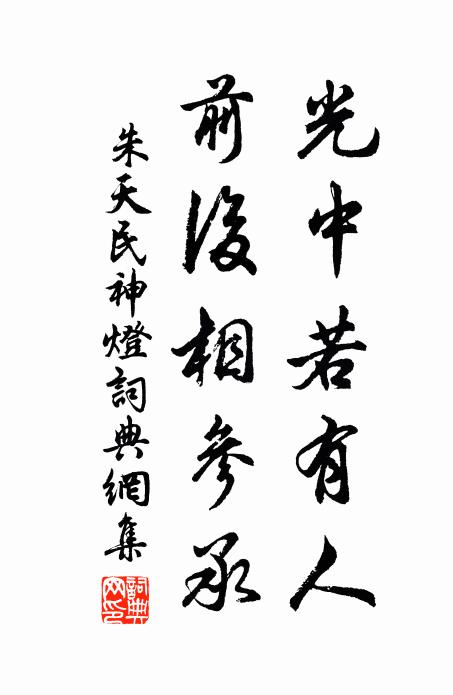 光中若有人
前後相參承
朱天民神燈詞典網集
詞典網印